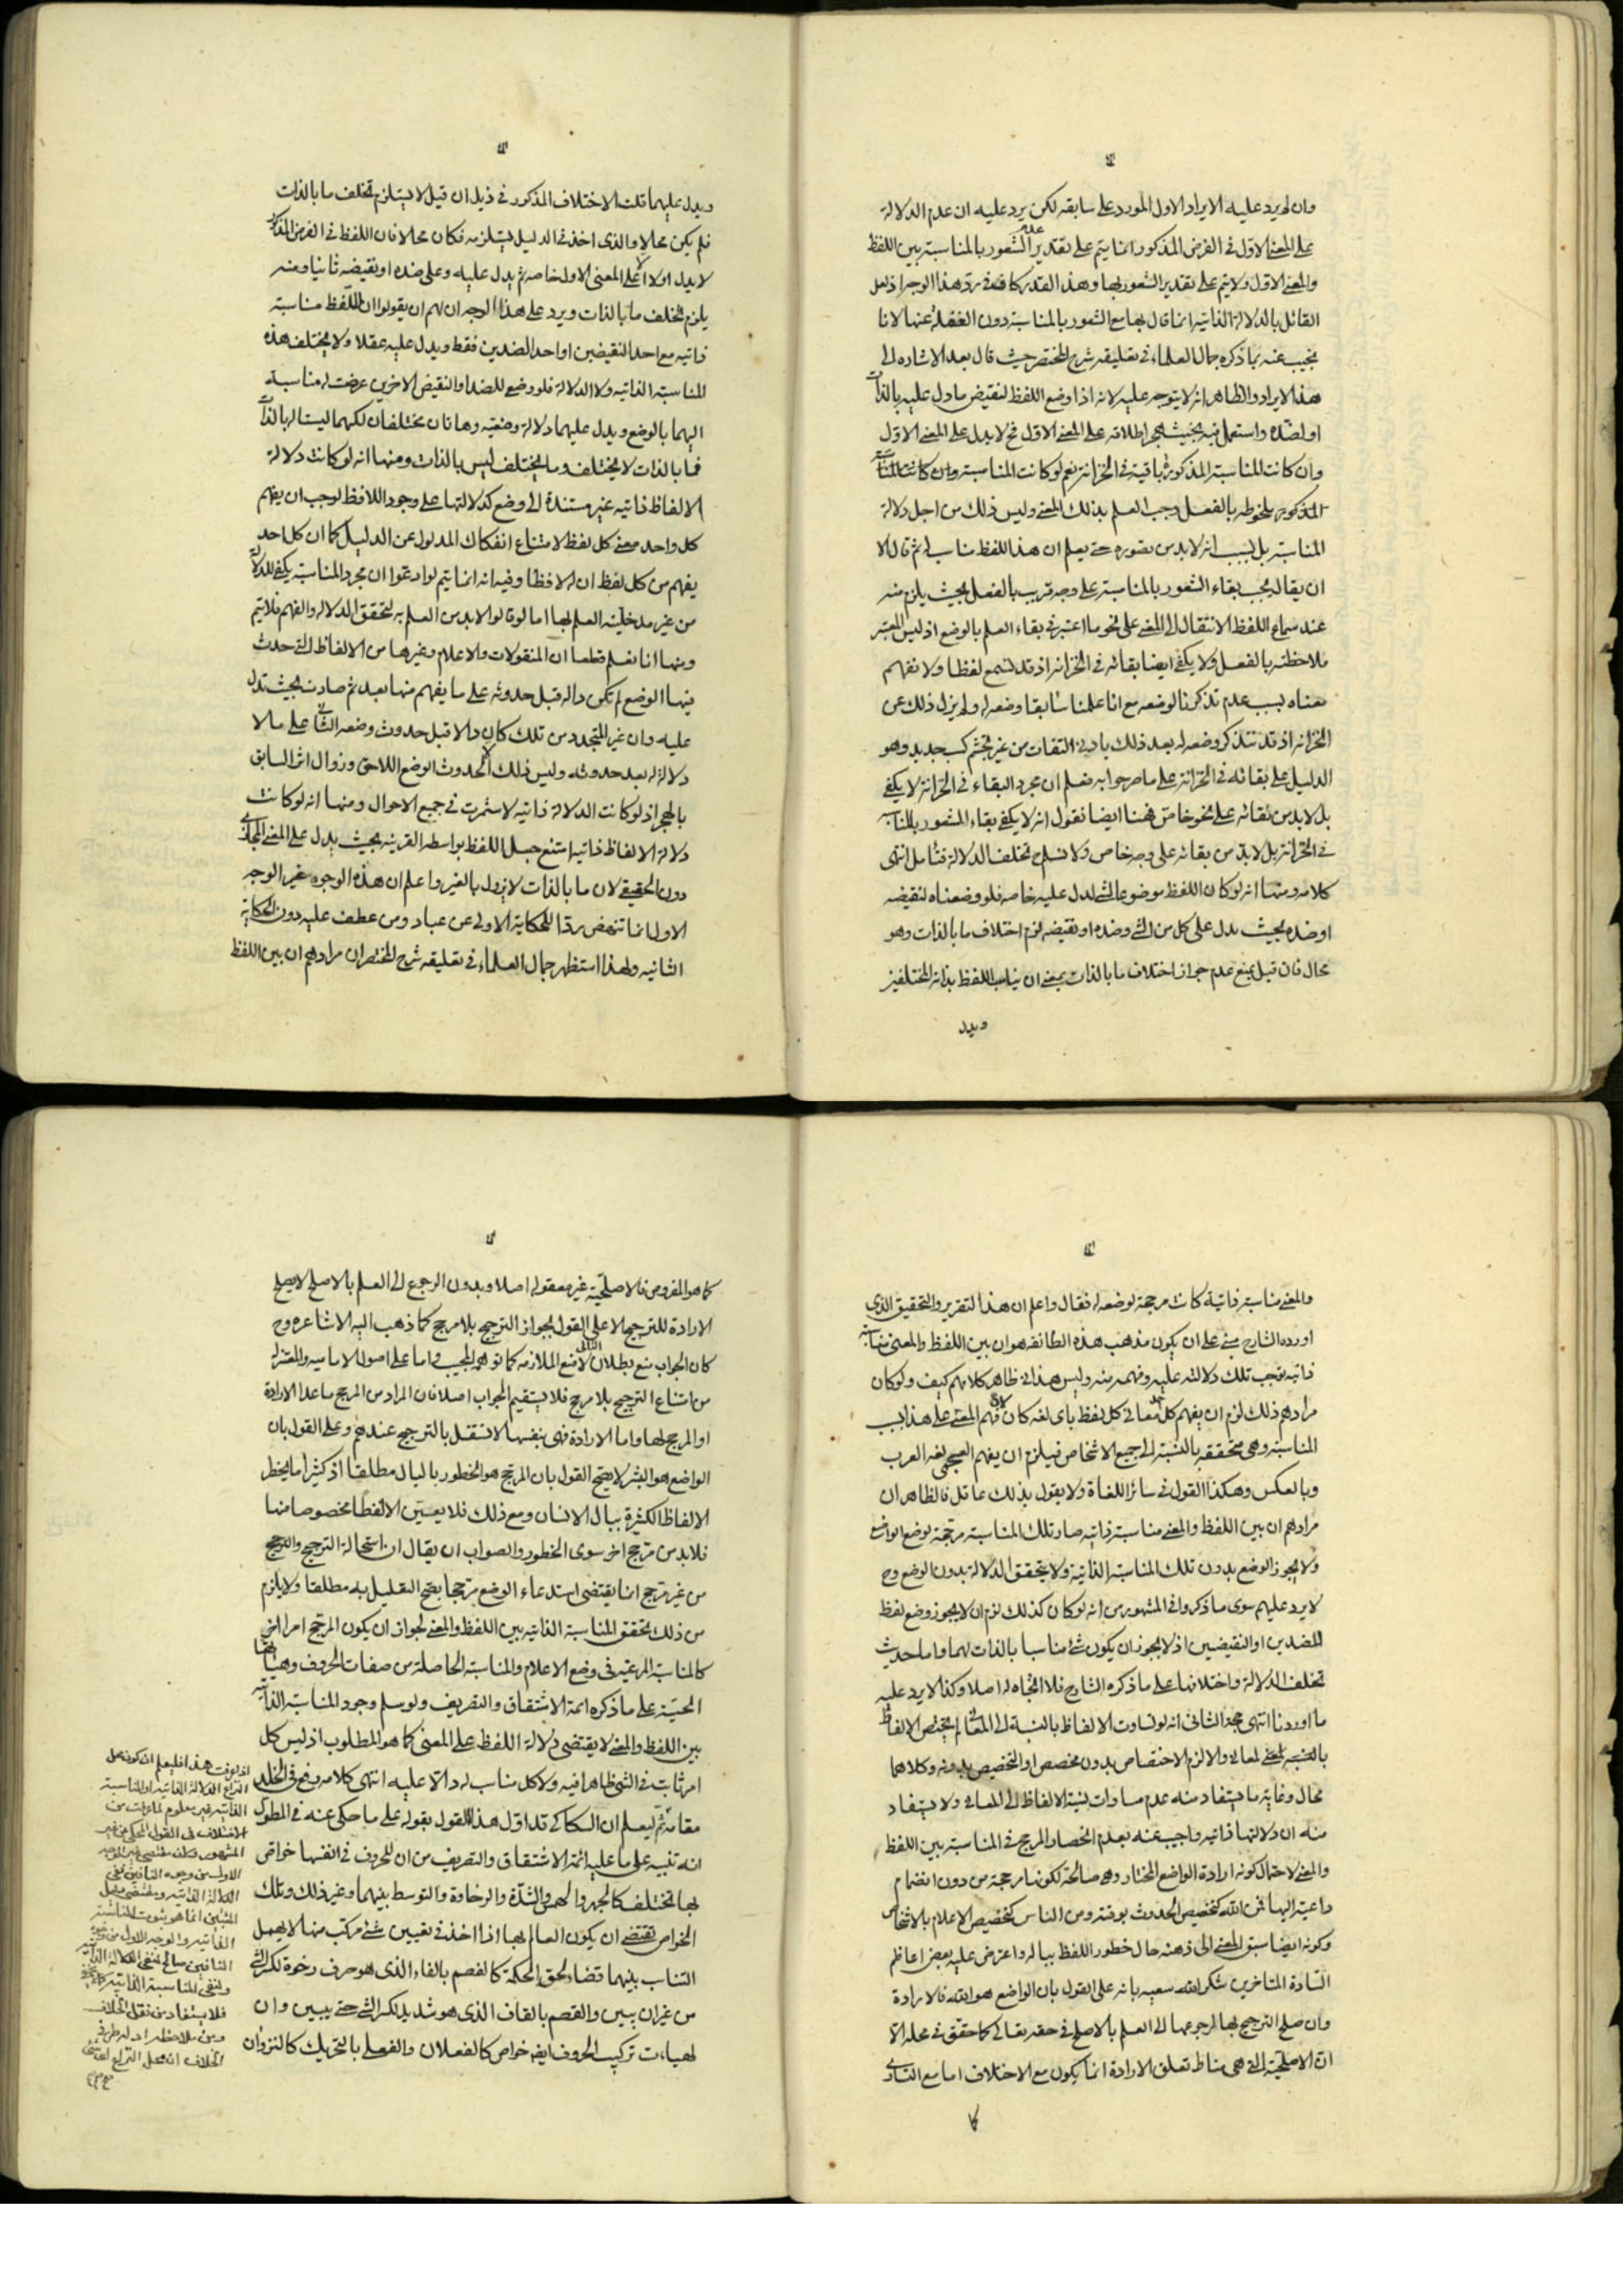 وان لم يرد عليه الايراد الاول المورد على سابقه لكن يرد عليه ان عدم الدلالة
على المعنى الاول فى الفرض المذكور انما يتم على تقدير عدم الشعور بالمناسبة بين اللفظ
والمعنى الاول ولا يتم على تقدير الشعور بها وهذا القدر كاف فى رد هذا الوجه اذ لعل
القائل بالدلالة الذاتيه انما قال بها مع الشعور بالمناسبة دون الغفلة عنها لانا
نجيب عنه بما ذكره جمال العلماء فى تعليقه شرح المختصر حيث قال بعد الاشاره الى
هذا الايراد والظاهر انه لا يتوجه عليه لانه اذا وضع اللفظ لنقيض ما دل عليه بالذات
او لضده واستعمل فيه بحيث هجر اطلاقه على المعنى الاول فح لا يدل على المعنى الاول
وان كانت المناسبة المذكورة باقية فى الخزانة نعم لو كانت المناسبة وان كانت المناسبة
المذكوره ملحوظه بالفعل وجب العلم بذلك المعنى وليس ذلك من اجل دلالة
المناسبة بل بسبب انه لا بد من تصوره حتى يعلم ان هذا اللفظ مناسب له ثم قال الا
ان يقال يجب بقاء الشعور بالمناسبة على وجه قريب بالفعل بحيث يلزم منه
عند سماع اللفظ الانتقال الى المعنى على نحو ما اعتبر فى بقاء العلم بالوضع اذ ليس المعتبر
ملاحظته بالفعل ولا يكفى ايضا بقائه فى الخزانه اذ قد نسمع لفظا ولا نفهم
معناه بسبب عدم تذكرنا لوضعه مع انا علمنا سابقا وضعه له ولم يزل ذلك عن
الخزانه اذ قد نتذكر وضعه له بعد ذلك بادنى التفات من غير تجشم كسب جديد وهو
الدليل على بقائه فى الخزانة على ما صرحوا به فعلم ان مجرد البقاء فى الخزانة لا يكفى
بل لا بد من بقائه على نحو خاص فههنا ايضا نقول انه لا يكفى بقاء الشعور بالمناسبة
فى الخزانة بل لا بد من بقائه على وجه خاص ولا نسلم ح تخلف الدلالة فتامل انتهى
كلامه ومنها انه لو كان اللفظ موضوعا لشئ لدل عليه خاصه فلو وضعناه لنقيضه
او ضده بحيث يدل على كل من الشئ وضده او نقيضه لزم اختلاف ما بالذات وهو
محال فان قيل يمنع عدم جواز اختلاف ما بالذات بمعنى ان يناسب اللفظ بذاته المختلفين
ويدل
ويدل عليهما قلت الاختلاف المذكور فى ذيل ان قيل لا يستلزم تخلف ما بالذات
فلم يكن محالا والذى اخذ فى الدليل يستلزمه فكان محالا فان اللفظ فى الفرض المذكور
لا يدل اولا الا على المعنى الاول خاصه ثم يدل عليه وعلى ضده او نقيضه ثانيا ومنه
يلزم تخلف ما بالذات ويرد على هذا الوجه ان لهم ان يقولوا ان للفظ مناسبة
ذاتيه مع احد النقيضين او احد الضدين فقط ويدل عليه عقلا ولا يختلف هذه
المناسبة الذاتيه ولا الدلالة فلو وضع للضد او النقيض الاخرين عرضت له مناسبة
اليهما بالوضع ويدل عليهما دلالة وضعيه وهاتان مختلفان لكنهما ليستا له بالذات
فما بالذات لا يختلف وما يختلف ليس بالذات ومنها انه لو كانت دلالة
الالفاظ ذاتيه غير مستندة الى وضع كدلالتها على وجود اللافظ لوجب ان يفهم
كل واحد معنى كل لفظ لامتناع انفكاك المدلول عن الدليل كما ان كل احد
يفهم من كل لفظ ان له لافظا وفيه انه انما يتم لو ادعوا ان مجرد المناسبة يكفى للدلالة
من غير مدخلية العلم بها اما لو قالوا لا بد من العلم به لتحقق الدلاله والفهم فلا يتم
ومنها انا نعلم قطعا ان المنقولات والاعلام وغيرها من الالفاظ التى حدث
فيها الوضع لم تكن داله قبل حدوثه على ما يفهم منها بعد ثم صارت بحيث تدل
عليه وان غير المتجدد من تلك كان دالا قبل حدوث وضعه الثانى على ما لا
دلالة له بعد حدوثه وليس ذلك الا لحدوث الوضع اللاحق وزوال اثر السابق
بالهجر اذ لو كانت الدلالة ذاتيه لاستمرت فى جميع الاحوال ومنها انه لو كانت
دلالة الالفاظ ذاتيه امتنع جعل اللفظ بواسطه القرينه بحيث يدل على المعنى المجازى
دون الحقيقى لان ما بالذات لا يزول بالغير واعلم ان هذه الوجوه غير الوجه
الاول انما تنهض ردا للحكاية الاولى عن عباد ومن عطف عليه دون الحكاية
الثانيه ولهذا استظهر جمال العلماء فى تعليقه شرح المختصر ان مرادهم ان بين اللفظ
والمعنى مناسبة ذاتية كانت مرجحة لوضعه له فقال واعلم ان هذا التقرير والتحقيق الذى
اورده الشارح مبنى على ان يكون مذهب هذه الطائفه هو ان بين اللفظ والمعنى مناسبة
ذاتيه توجب تلك دلالته عليه وفهمه منه وليس هذا فى ظاهر كلامهم كيف ولو كان
مرادهم ذلك لزم ان يفهم كل احد معانى كل لفظ باى لغه كان لان فهم المعنى على هذا بسبب
المناسبة وهى متحققه بالنسبة الى جميع الاشخاص فيلزم ان يفهم العجمى لغه العرب
وبالعكس وهكذا القول فى سائر اللغاة ولا يقول بذلك عاقل فالظاهر ان
مرادهم ان بين اللفظ والمعنى مناسبة ذاتيه صار تلك المناسبة مرجحة لوضع الواضع
ولا يجوز الوضع بدون تلك المناسبة الذاتية ولا يتحقق الدلالة بدون الوضع وح
لا يرد عليهم سوى ما ذكروا فى المشهور من انه لو كان كذلك لزم ان لا يجوز وضع لفظ
للضدين او النقيضين اذ لا يجوز ان يكون شئ مناسبا بالذات لهما واما حديث
تخلف الدلالة واختلافها على ما ذكره الشارح فلا اتجاه له اصلا وكذا لا يرد عليه
ما اوردنا انتهى حجة الثانى انه لو تساوت الالفاظ بالنسبة الى المعانى لم يختص الالفاظ
بالمعانى والا لزم الاختصاص بدون مخصص او التخصيص بدونه وكلاهما
محال وغاية ما يستفاد منه عدم مساوات نسبة الالفاظ الى المعانى ولا يستفاد
منه ان دلالتها ذاتيه واجيب عنه بعدم انحصار المرجح فى المناسبة بين اللفظ
والمعنى لاحتمال كونه ارادة الواضع المختار وهى صالحة لكونها مرجحة من دون انضمام
داعية اليها فمن الله كتخصيص الحدوث بوقته ومن الناس كتخصيص الاعلام بالاشخاص
وكونه ايضا سبق المعنى الى ذهنه حال خطور اللفظ بباله واعترض عليه بعض اعاظم
السادة المتاخرين شكر الله سعيه بانه على القول بان الواضع هو الله فالارادة
وان صلح الترجيح بها لرجوعها الى العلم بالاصلح فى حقه تعالى كما حقق فى محله الا
ان الاصلحية التى هى مناط تعلق الارادة انما يكون مع الاختلاف اما مع التساوى
كما
كما هو المفروض فالاصلحية غير معقوله اصلا وبدون الرجوع الى العلم بالاصلح لا يصلح
الارادة للترجيح الا على القول بجواز الترجيح بلا مرجح كما ذهب اليه الاشاعره وح
كان الجواب منع بطلان التالى لا منع الملازمه كما توهمه المجيب واما على اصول الاماميه والمعتزله
من امتناع الترجيح بلا مرجح فلا يستقيم الجواب اصلا فان المراد من المرجح ما عدا الارادة
او المرجح لها واما الارادة فهى بنفسها لا تستقل بالترجيح عندهم وعلى القول بان
الواضع هو البشر لا يتجه القول بان المرجح هو الخطور بالبال مطلقا اذ كثيرا ما يخطر
الالفاظ الكثيرة ببال الانسان ومع ذلك فلا يعين الا لفظا مخصوصا منها
فلا بد من مرجح اخر سوى الخطور والصواب ان يقال ان استحالة الترجيح والترجح
من غير مرجح انما يقتضى استدعاء الوضع مرجحا يصح التعليل به مطلقا ولا يلزم
من ذلك تحقق المناسبة الذاتيه بين اللفظ والمعنى لجواز ان يكون المرجح امرا اخر
كالمناسبة المرعيه فى وضع الاعلام والمناسبة الحاصلة من صفات الحروف وهيأتها
الحسية على ما ذكره ائمة الاشتقاق والتصريف ولو سلم وجود المناسبة الذاتيه
بين اللفظ والمعنى لا يقتضى دلالة اللفظ على المعنى كما هو المطلوب اذ ليس كل
امر ثابت فى الشئ ظاهرا فيه ولا كل مناسب له دالا عليه انتهى كلامه رفع فى الخلد
مقامه ثم ليعلم ان السكاكى قد اول هذا القول بقوله على ما حكى عنه فى المطول
انه تنبيه على ما عليه ائمة الاشتقاق والتصريف من ان للحروف فى انفسها خواص
بها تختلف كالجهر والهمس والشدة والرخاوة والتوسط بينهما وغير ذلك وتلك
الخواص تقتضى ان يكون العالم بها اذا اخذ فى تعيين شئ مركب منها لا يهمل
التناسب بينهما قضاء لحق الحكمة كالفصم بالفاء الذى هو حرف رخوة لكسر الشئ
من غير ان يبين والقصم بالقاف الذى هو شديد لكسر الشئ حتى يبين وان
لهيات تركيب الحروف ايضا خواص كالفعلان والفعلى بالتحريك كالنزوان
اذا عرفت هذا فليعلم ان كون محل
النزاع الدلالة الذاتيه او المناسبة
الذاتيه غير معلوم لما عرفت من
الاختلاف فى القول المحكى عن غير